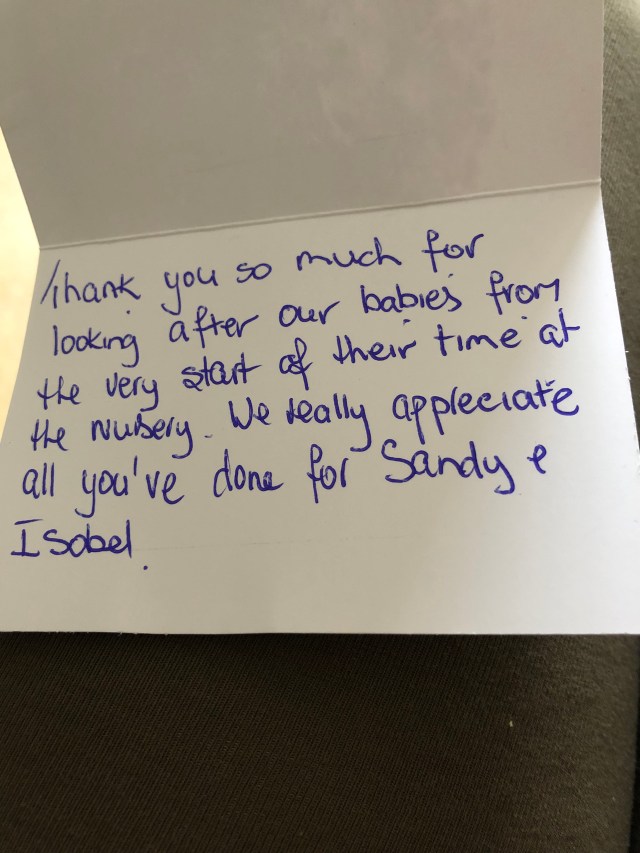 Thank you so much for
looking after our babies from
the very start of their time at
the nursery. We really appreciate
all you've done for Sandy &
Isobel.